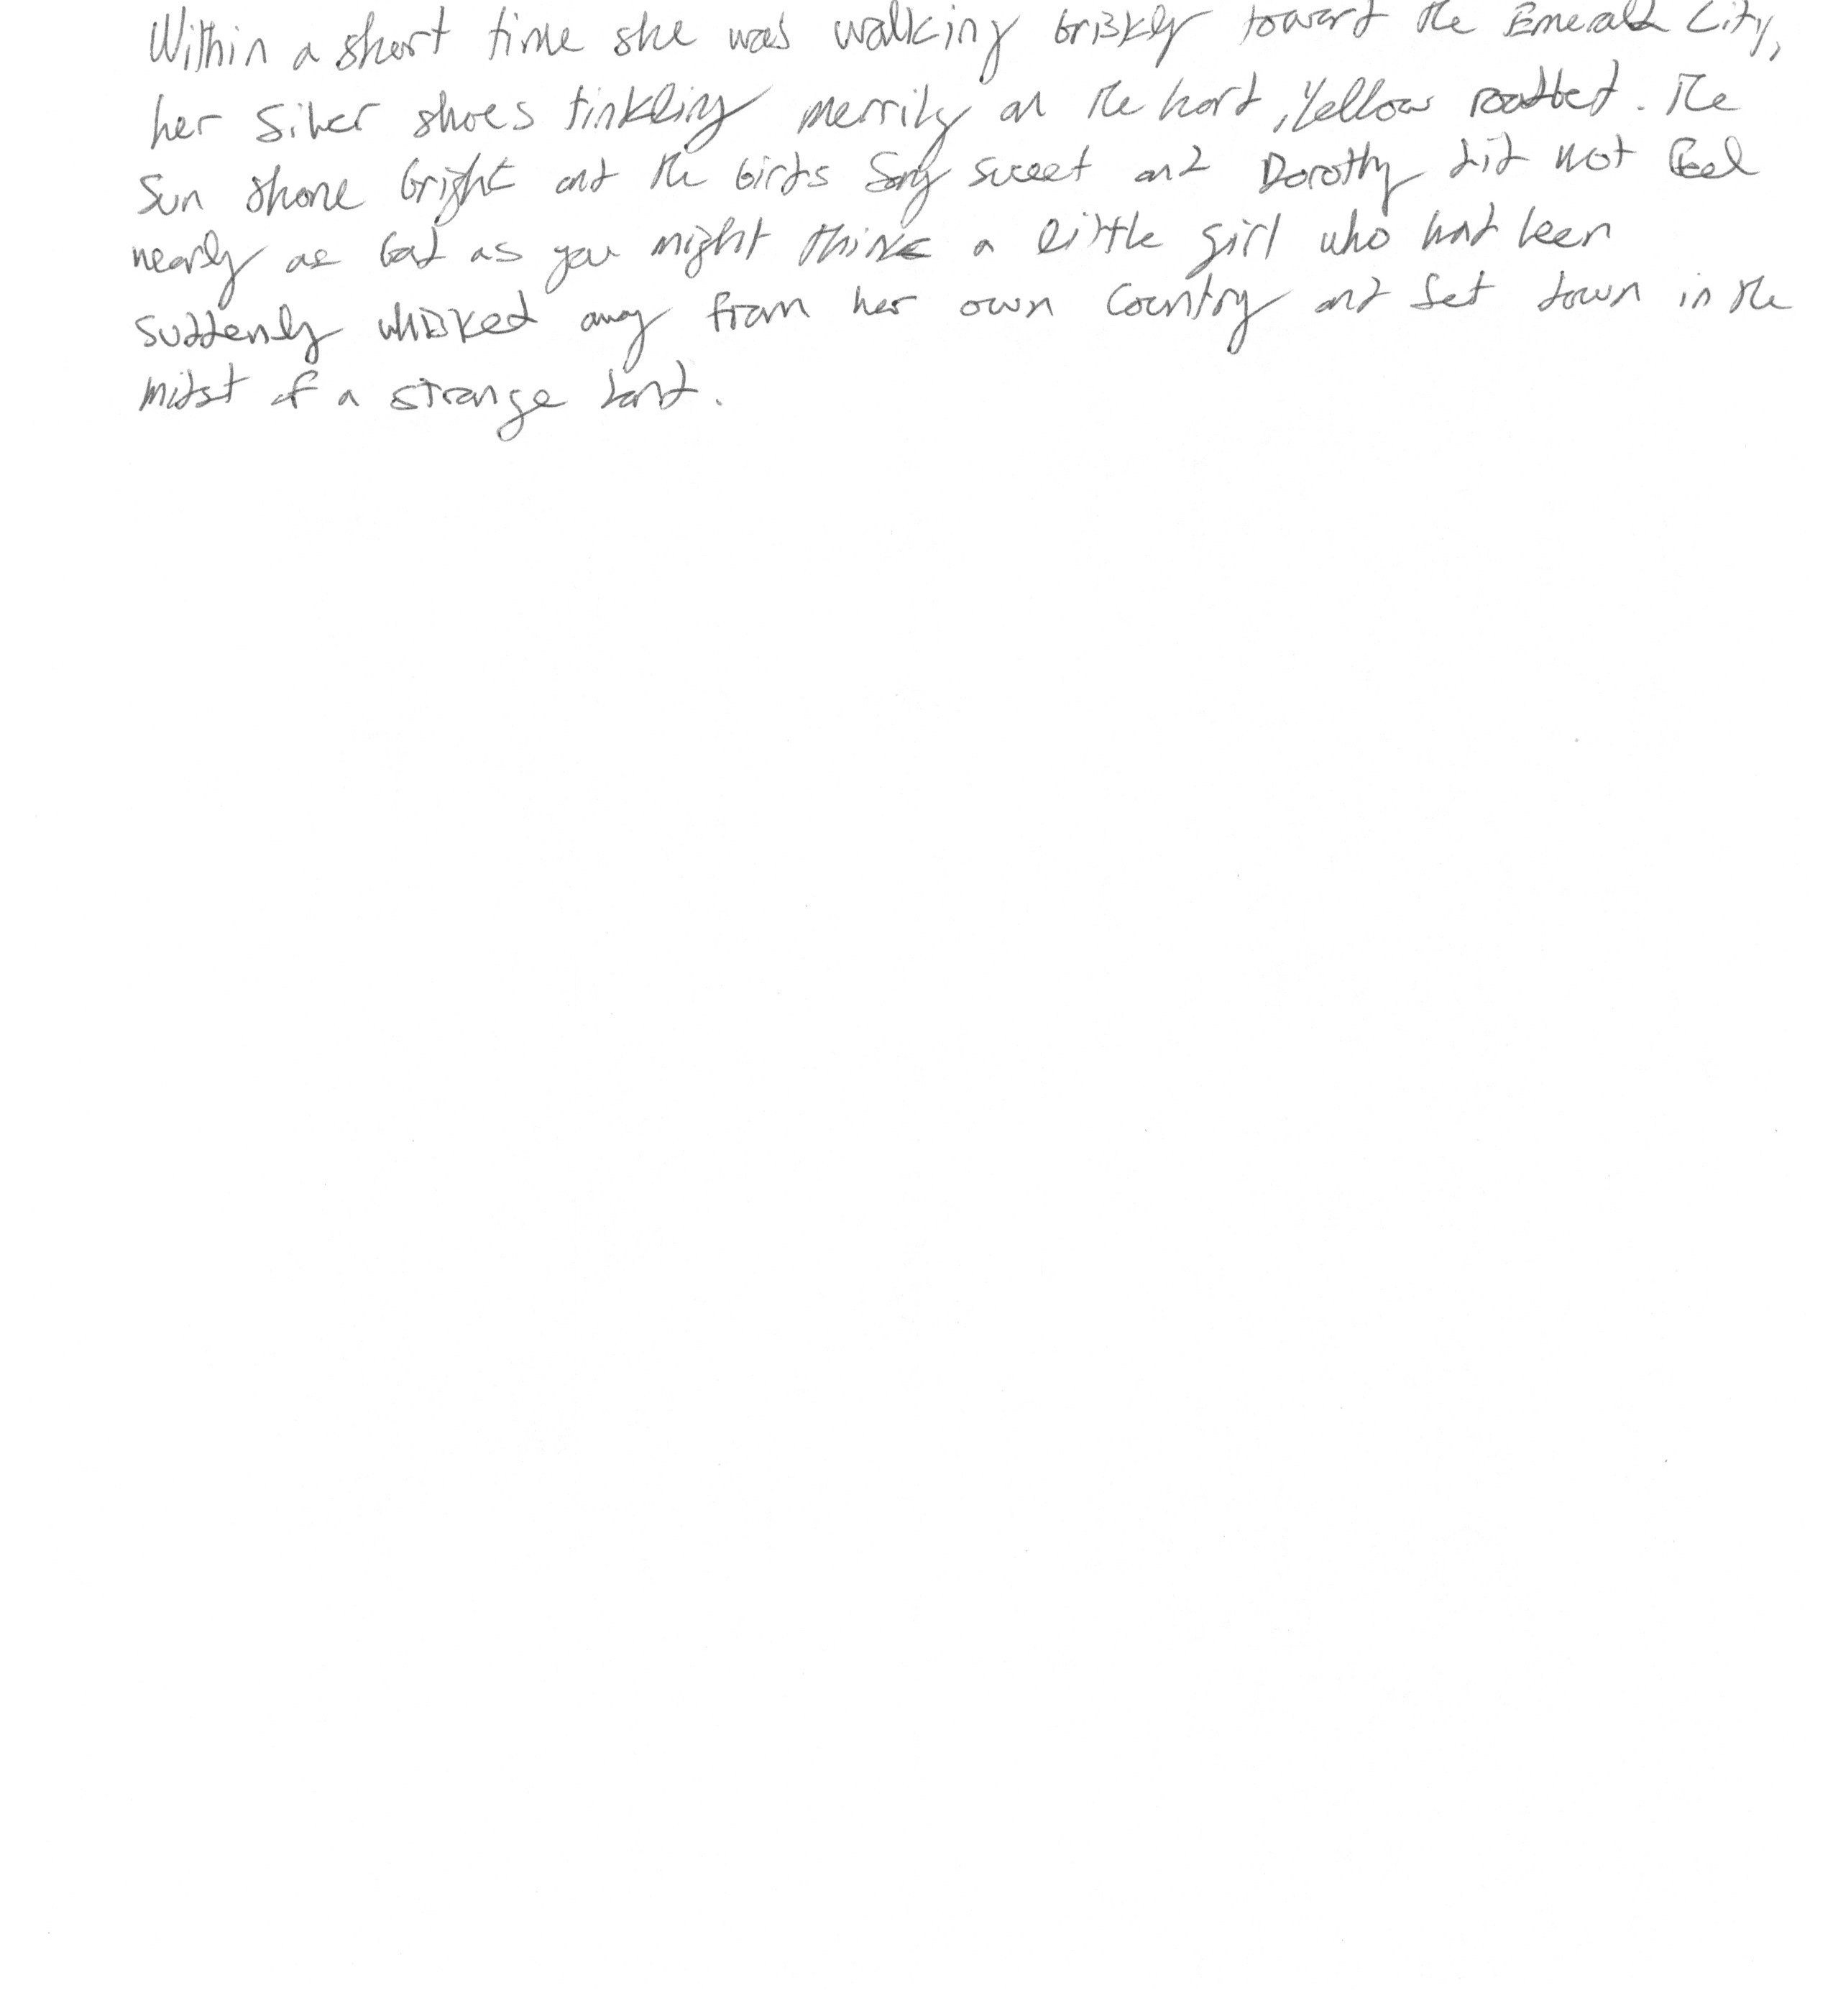 Within a short time she was walking briskly toward the Emerald City,
her silver shoes tinkling merrily on the hard, yellow roadbed. The
sun shone bright and the birds sang sweet and Dorothy did not feel
nearly as bad as you might think a little girl who had been
suddenly whisked away from her own country and set down in the
midst of a strange land.